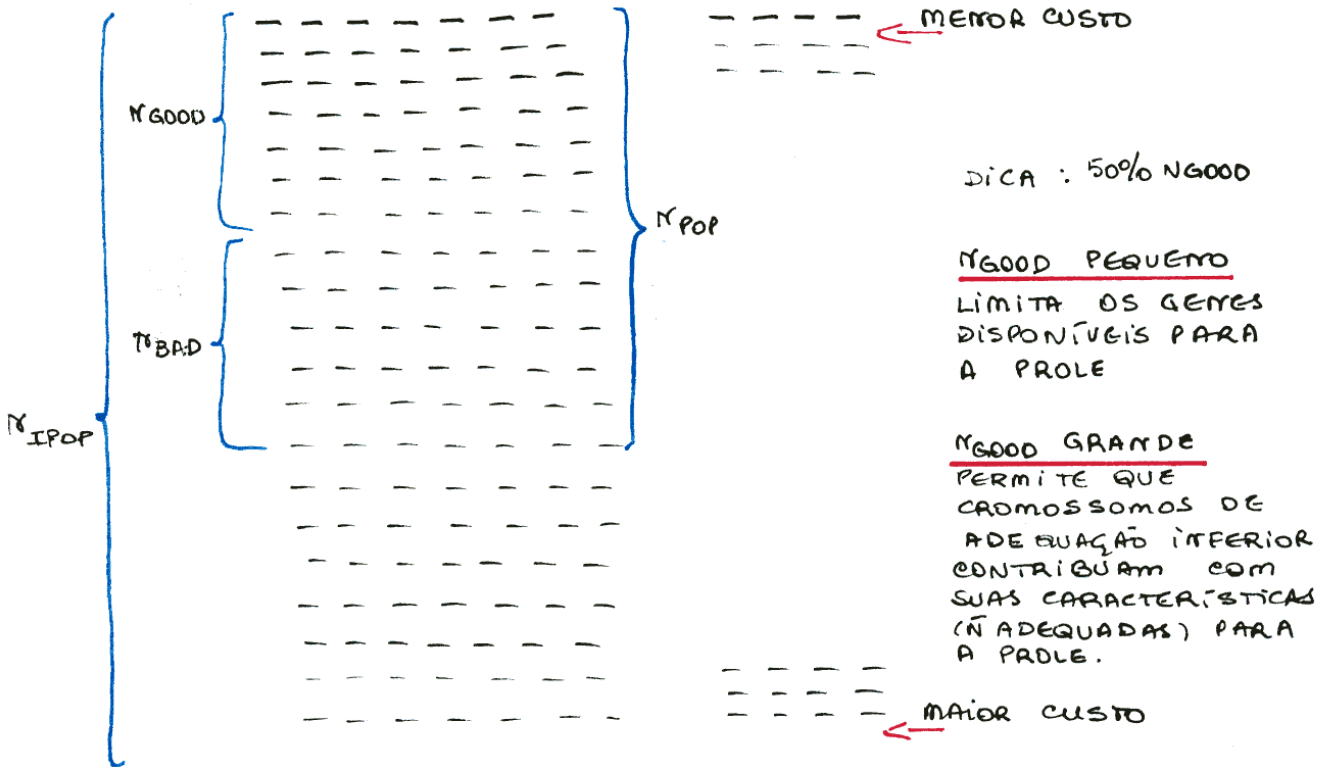 MENOR CUSTO
NGOOD
DICA : 50% NGOOD
NPOP
NGOOD PEQUENO
LIMITA OS GENES
DISPONÍVEIS PARA
A PROLE
NBAD
NIPOP
NGOOD GRANDE
PERMITE QUE
CROMOSSOMOS DE
ADEQUAÇÃO INFERIOR
CONTRIBUAM COM
SUAS CARACTERÍSTICAS
(Ñ ADEQUADAS) PARA
A PROLE.
MAIOR CUSTO